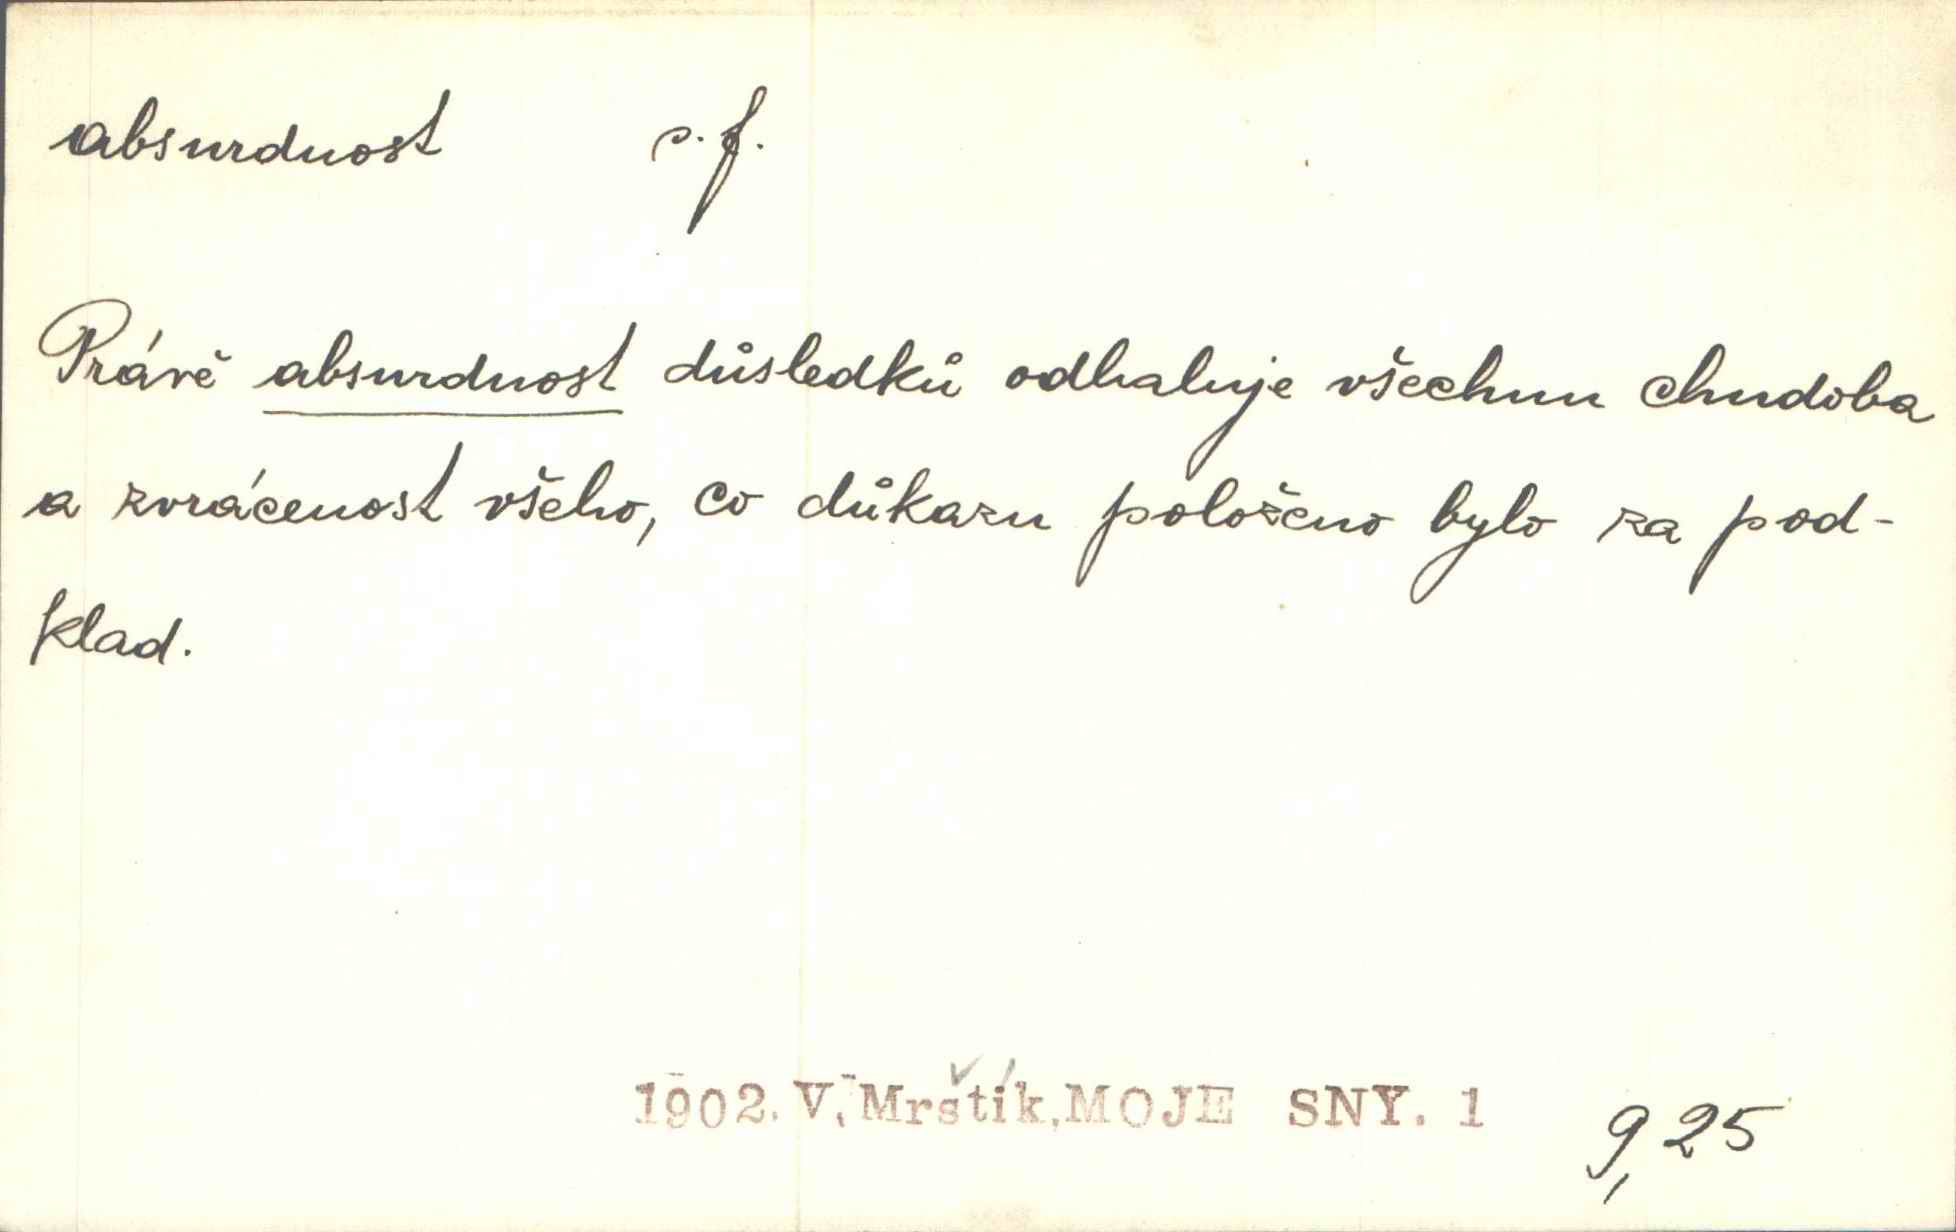 absurdnost s. f.
Právě absurdnost důsledků odhaluje všechnu chudoba
a zvrácenost všeho, co důkazu položeno bylo za pod-
klad.
1902. V. Mrštík, MOJE SNY. 1 9,25